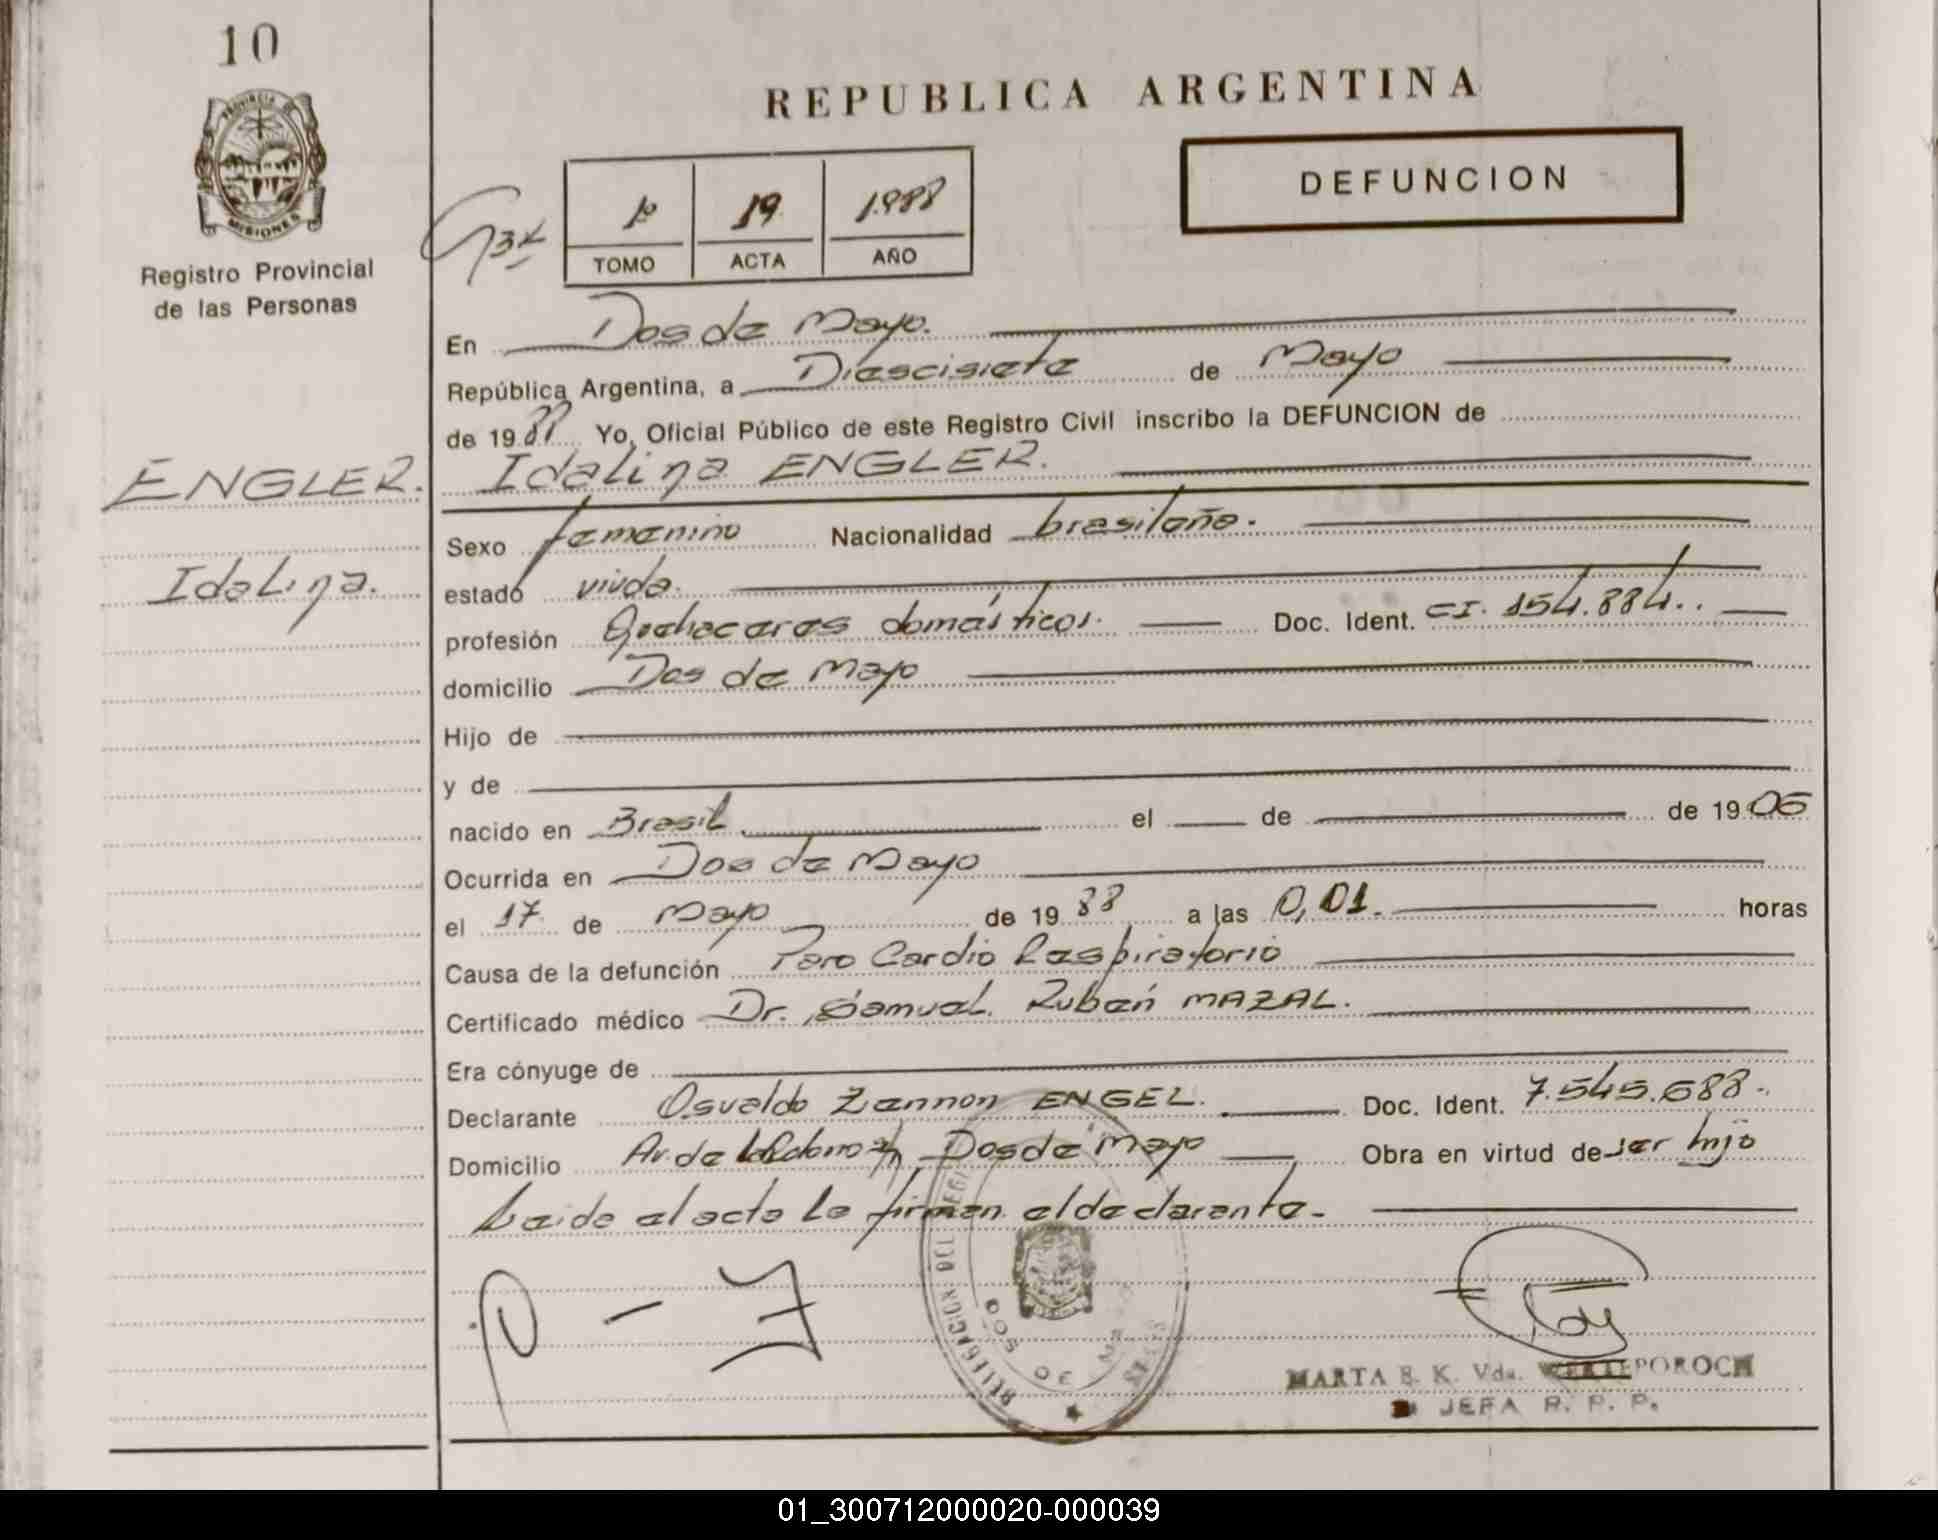 10
PROVINCIA DE
MISIONES
Registro Provincial
de las Personas
REPUBLICA ARGENTINA
DEFUNCION
1º 19 1.988
TOMO ACTA AÑO
En Dos de Mayo.
República Argentina, a Diescisiete de Mayo
de 1988 Yo, Oficial Público de este Registro Civil inscribo la DEFUNCION de
ENGLER. Idalina ENGLER.
Sexo femenino Nacionalidad brasileña.
Idalina.
estado viuda.
profesión Quehaceres domésticos. Doc. Ident. CI. 154.884..
domicilio Dos de Mayo
Hijo de
y de
nacido en Brasil el de de 1906
Ocurrida en Dos de Mayo
el 17 de Mayo de 1988 a las 0,01. horas
Causa de la defunción Paro Cardio Respiratorio
Certificado médico Dr. Samuel Rubén MAZAL.
Era cónyuge de
Declarante Osvaldo Zannon ENGEL. Doc. Ident. 7.545.688.
Domicilio Av. de Dos de Mayo Obra en virtud de ser hijo
Leida el acta la firman el declarante.
DELEGACION DEL REGI
MARTA E. K. Vda. POROCH
JEFA R. P. P.
01_300712000020-000039